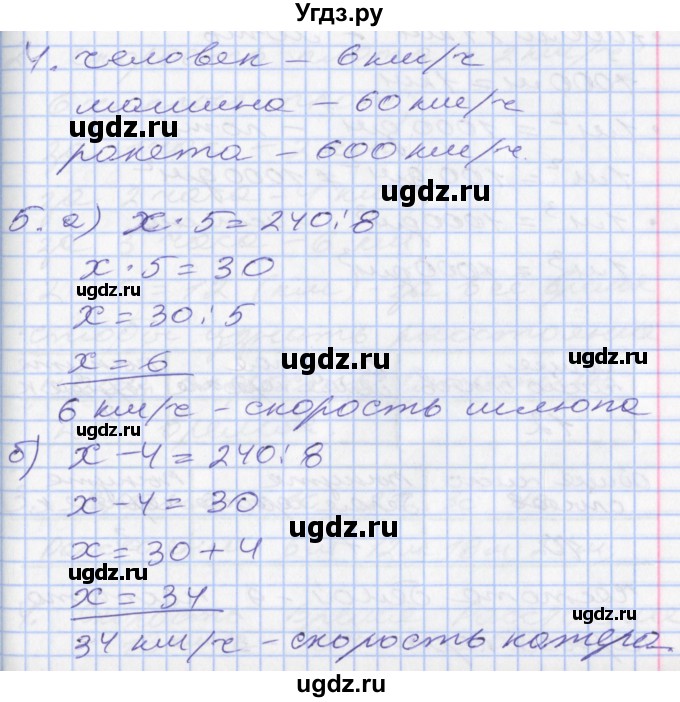 Угдз.ру
4. человек – 6 км/ч
машина – 60 км/ч
ugdz.ru
ракета – 600 км/ч.
ugdz.ru
5. а) x · 5 = 240 : 8
x · 5 = 30
ugdz.ru
x = 30 : 5
x = 6
ugdz.ru
ugdz.ru
6 км/ч – скорость шлюпа
ugdz.ru
б) x – 4 = 240 : 8
x – 4 = 30
ugdz.ru
x = 30 + 4
ugdz.ru
x = 34
ugdz.ru
34 км/ч – скорость катера.
ugdz.ru